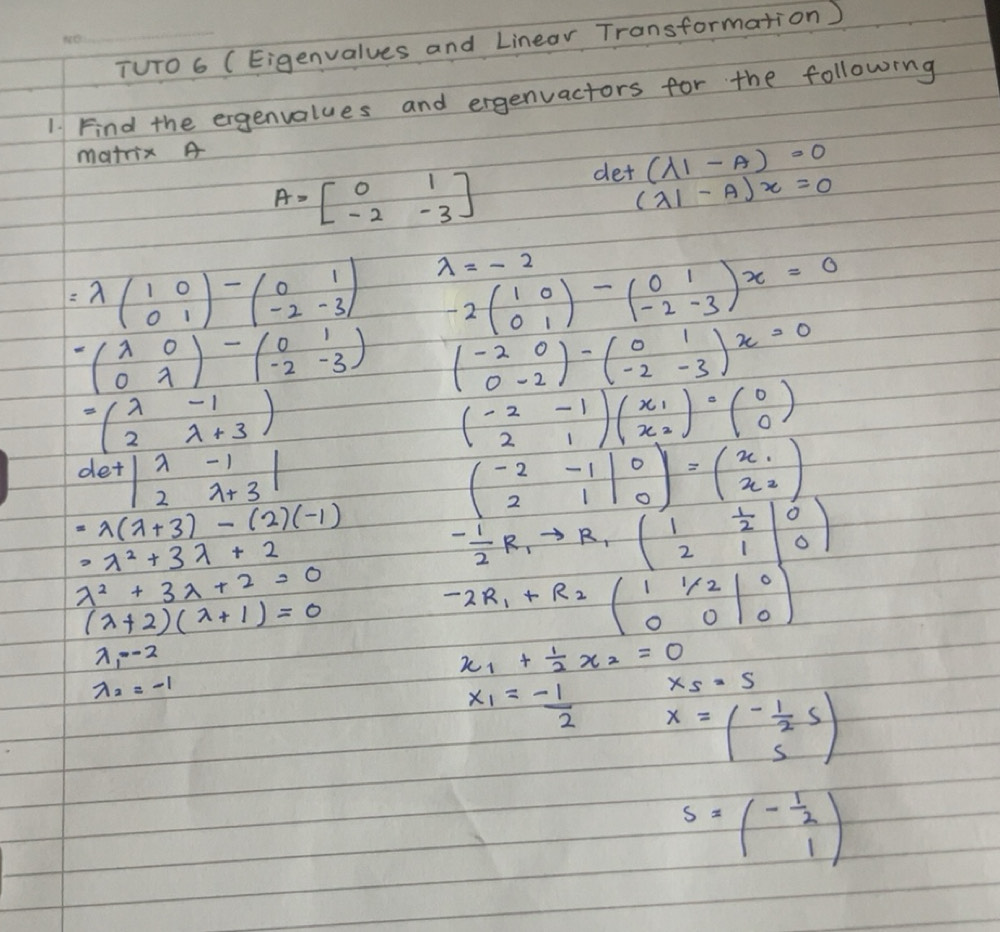 NO.
TUTO 6 ( Eigenvalues and Linear Transformation )
1. Find the eigenvalues and eigenvactors for the following
matrix A
A = [ 0 1 ]
[ -2 -3 ]
det (λI - A) = 0
(λI - A)x = 0
= λ ( 1 0 ) - ( 0 1 )
( 0 1 ) ( -2 -3 )
= ( λ 0 ) - ( 0 1 )
( 0 λ ) ( -2 -3 )
= ( λ -1 )
( 2 λ+3 )
det | λ -1 |
| 2 λ+3 |
= λ(λ+3) - (2)(-1)
= λ² + 3λ + 2
λ² + 3λ + 2 = 0
(λ+2)(λ+1) = 0
λ₁ = -2
λ₂ = -1
λ = -2
-2 ( 1 0 ) - ( 0 1 ) x = 0
( 0 1 ) ( -2 -3 )
( -2 0 ) - ( 0 1 ) x = 0
( 0 -2 ) ( -2 -3 )
( -2 -1 ) ( x₁ ) = ( 0 )
( 2 1 ) ( x₂ ) ( 0 )
( -2 -1 | 0 ) = ( x₁ )
( 2 1 | 0 ) ( x₂ )
-1/2 R₁ → R₁ ( 1 1/2 | 0 )
( 2 1 | 0 )
-2R₁ + R₂ ( 1 1/2 | 0 )
( 0 0 | 0 )
x₁ + 1/2 x₂ = 0
x₁ = -1/2
xs = s
x = ( -1/2 s )
( s )
s = ( -1/2 )
( 1 )